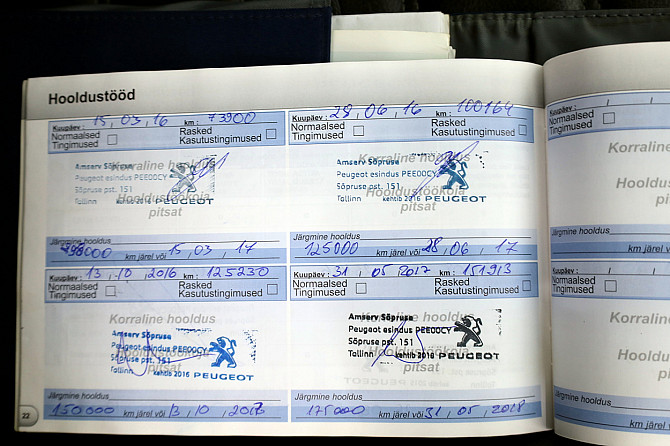 Hooldustööd
Kuupäev : 15 , 03 , 16 km : 73900
Normaalsed Tingimused
Rasked Kasutustingimused
Korraline hooldus
Amserv Sõpruse
Peugeot esindus PEE00CY
Sõpruse pst. 151
Hooldustöökoja
Tallinn kehtib 2016 PEUGEOT
pitsat
Järgmine hooldus
98000 km järel või 15 , 03 , 17
Kuupäev : 28 , 06 , 16 km : 100164
Normaalsed Tingimused
Rasked Kasutustingimused
Korraline hooldus
Amserv Sõpruse
Peugeot esindus PEE00CY
Sõpruse pst. 151
Hooldustöökoja
Tallinn kehtib 2016 PEUGEOT
pitsat
Järgmine hooldus
125000 km järel või 28 , 06 , 17
Kuupäev : 13 , 10 , 2016 km : 125230
Normaalsed Tingimused
Rasked Kasutustingimused
Korraline hooldus
Amserv Sõpruse
Peugeot esindus PEE00CY
Hooldustöökoja
Sõpruse pst. 151
pitsat
Tallinn kehtib 2016 PEUGEOT
Järgmine hooldus
150000 km järel või 13 , 10 , 2017
Kuupäev : 31 , 05 2017 km : 151913
Normaalsed Tingimused
Rasked Kasutustingimused
Korraline hooldus
Amserv Sõpruse
Peugeot esindus PEE00CY
Sõpruse pst. 151
Hooldustöökoja
Tallinn kehtib 2016 PEUGEOT
pitsat
Järgmine hooldus
175000 km järel või 31 , 05 , 2018
22
Kuupäev : / /
Normaalsed Tingimused
Korraline
Hooldustöö
pitsat
Järgmine hooldus
km järel v
Kuupäev : / /
Normaalsed Tingimused
Korraline
Hooldustöö
pitsa
Järgmine hooldus
km järel